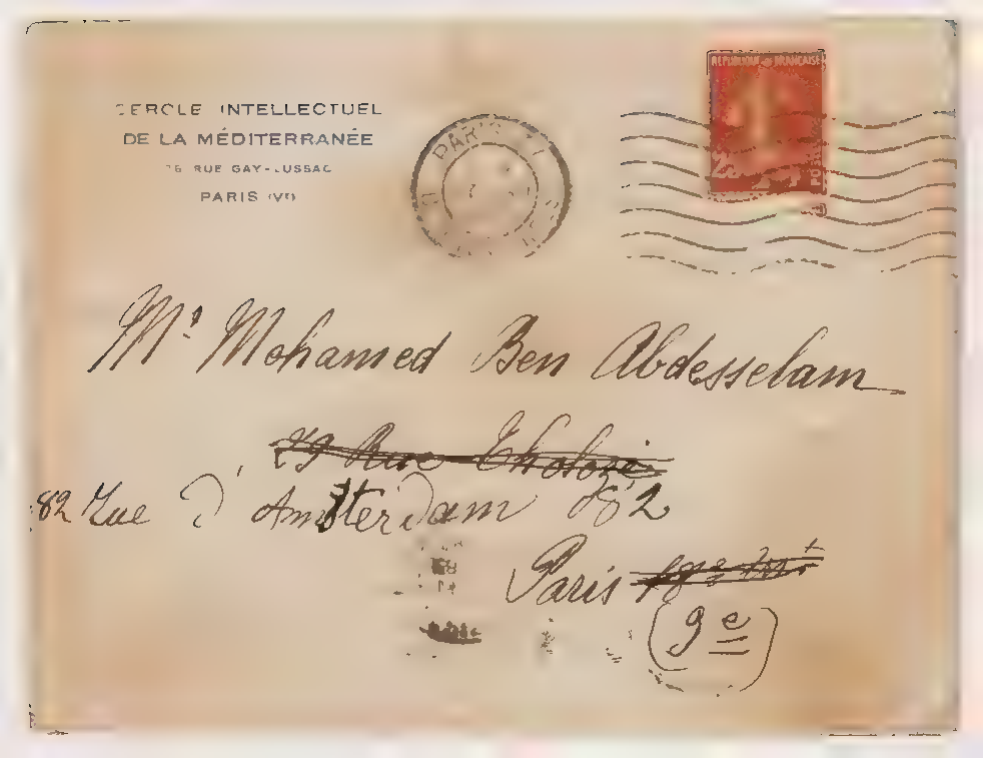 CERCLE INTELLECTUEL
DE LA MÉDITERRANÉE
RUE GAY-LUSSAC
PARIS (Vᵉ)
PARIS
REPUBLIQUE FRANÇAISE
POSTES
Mʳ Mohamed Ben Abdesselam
29 Rue Tholozé
82 Rue d'Amsterdam 82
Paris
(9e)